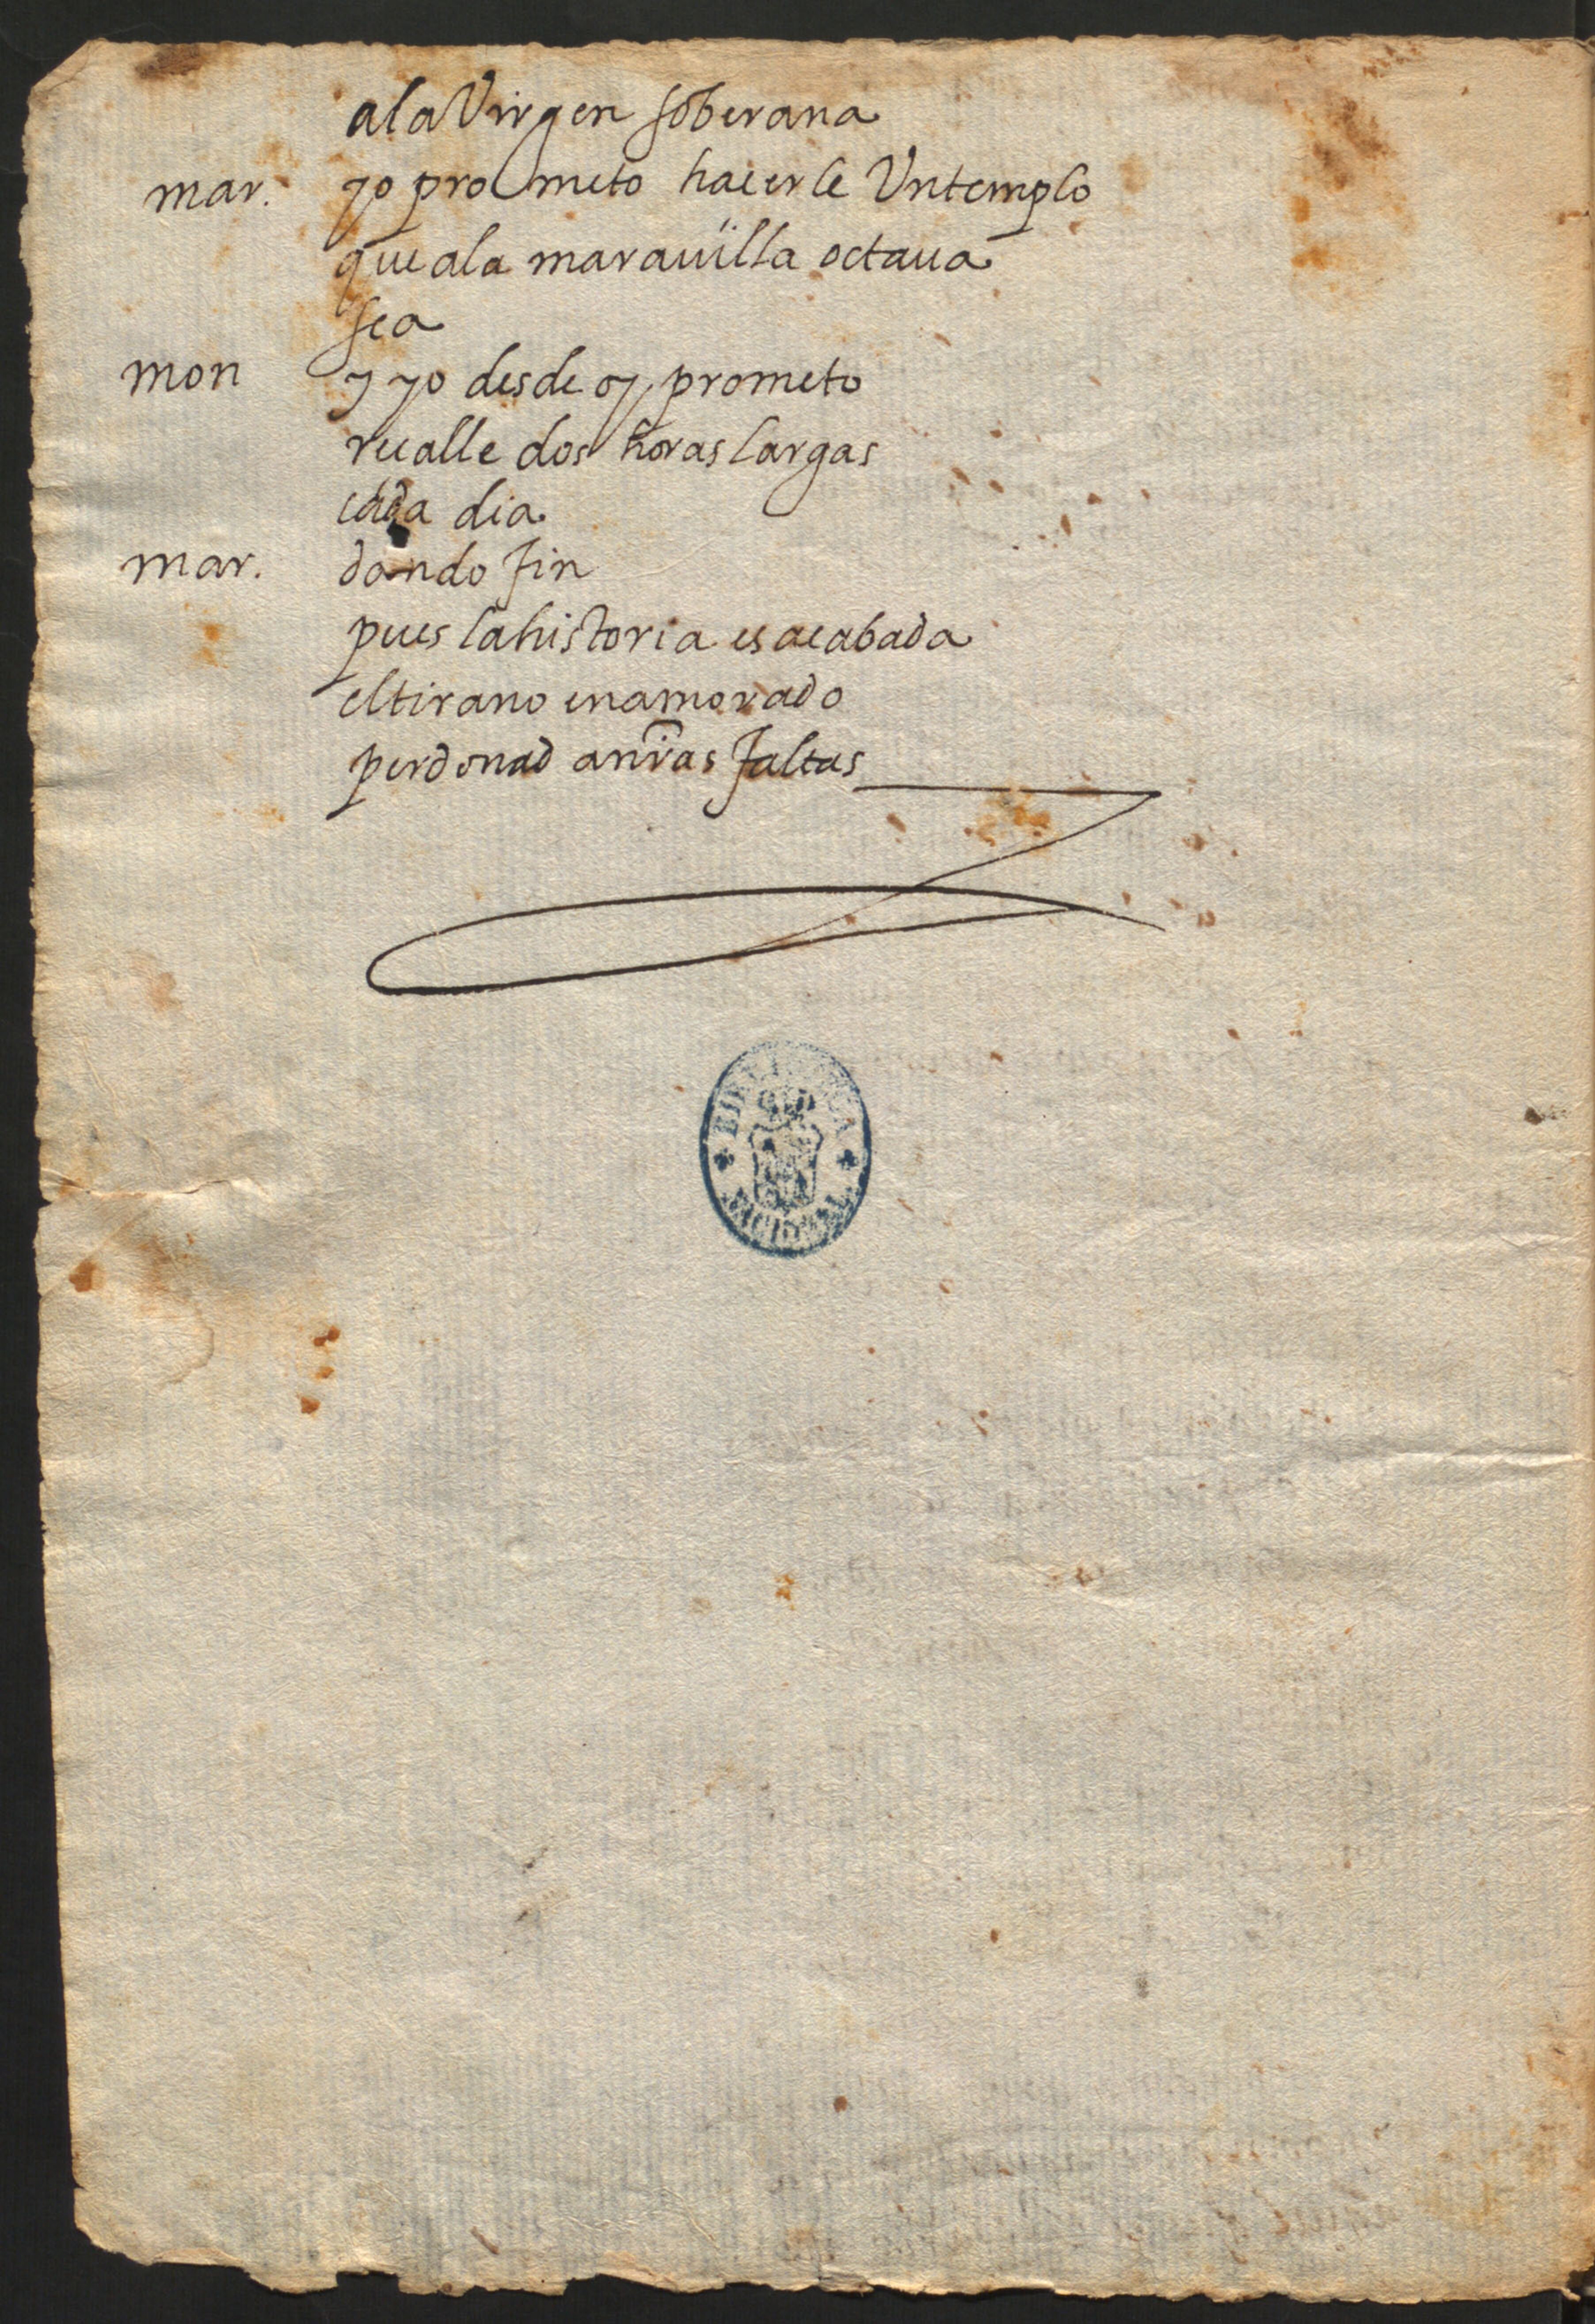 ala Virgen soberana
mar. yo prometo hacerle Vn templo
que ala marauilla octaua
sea
mon y yo desde oy prometo
recalle dos horas largas
cada dia
mar. dando fin
pues la historia es acabada
el tirano enamorado
perdonad a nr̃as faltas
BIBLIOTECA
NACIONAL